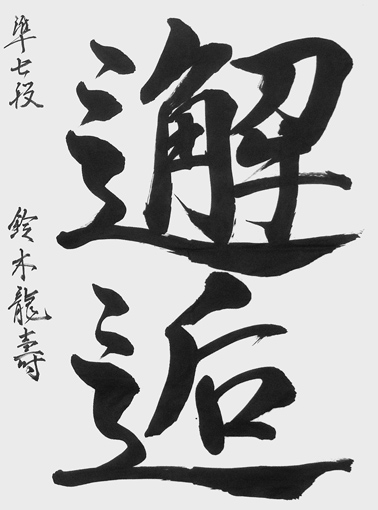 邂逅
準七段 鈴木龍壽